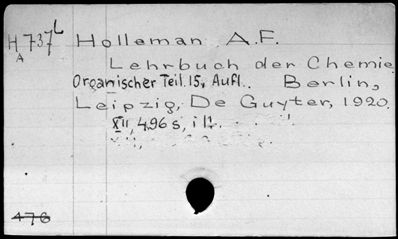 H 737 L Holleman A.F.
A
Lehrbuch der Chemie
Organischer Teil. 15. Aufl. Berlin,
Leipzig, De Guyter, 1920.
XII, 496 s, ill.
476